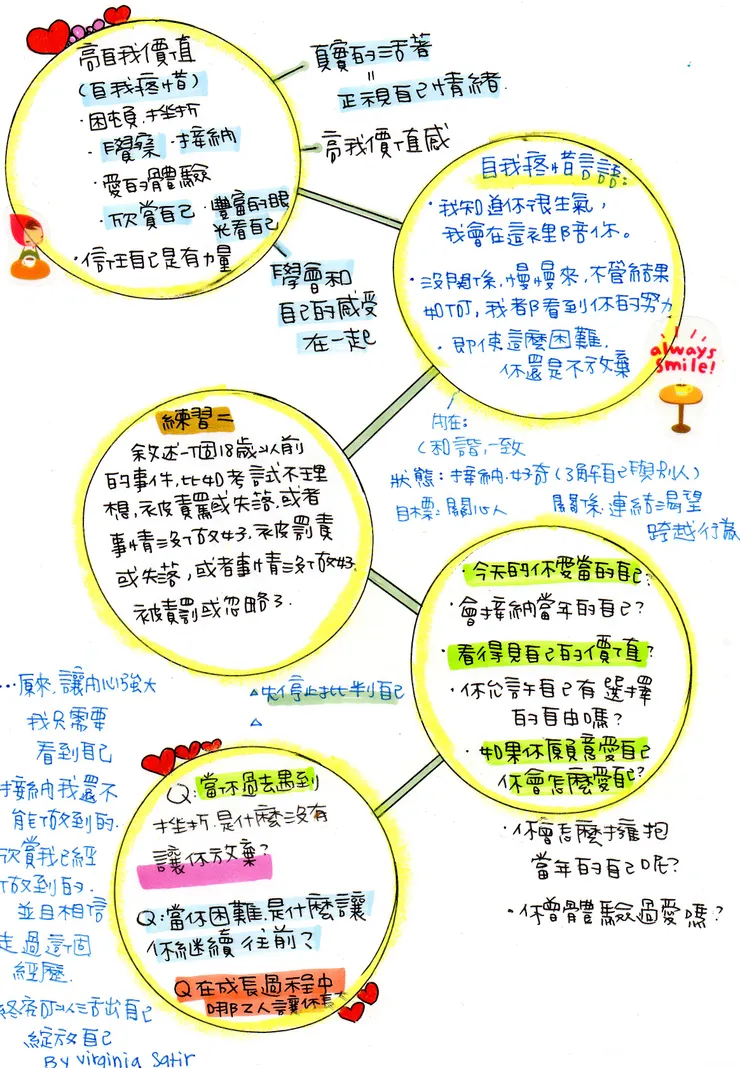 高自我價值
(自我疼惜)
·困頓.挫折
·覺察·接納
·愛的體驗
·欣賞自己·豐富的眼
光看自己
·信任自己是有力量
真實的活著
=
正視自己情緒
高我價值感
學會和
自己的感受
在一起
自我疼惜言語:
·我知道你很生氣,
我會在這裡陪你。
·沒關係,慢慢來,不管結果
如何,我都看到你的努力
·即使這麼困難.
你還是不放棄
always
smile!
內在:
(和諧,一致
狀態:接納.好奇(了解自己與別人)
目標:關心人 關係.連結渴望
跨越行為
練習二
敘述一個18歲以前
的事件,比如考試不理
想,被責罵或失落,或者
事情沒做好,被罰責
或失落,或者事情沒做好.
被責罰或忽略了.
·今天的你愛當的自己?
·會接納當年的自己?
·看得見自己的價值?
·你允許自己有選擇
的自由嗎?
·如果你願意愛自己
你會怎麼愛自己?
·你會怎麼擁抱
當年的自己呢?
·你曾體驗過愛嗎?
△先停止批判自己
△
Q:當你過去遇到
挫折.是什麼沒有
讓你放棄?
Q:當你困難.是什麼讓
你繼續往前?
Q在成長過程中
哪了人讓你
...原來,讓內心強大
我只需要
看到自己
接納我還不
能做到的.
欣賞我已經
做到的.
並且相信
走過這個
經歷.
終究可以活出自己
綻放自己
By virginia satir